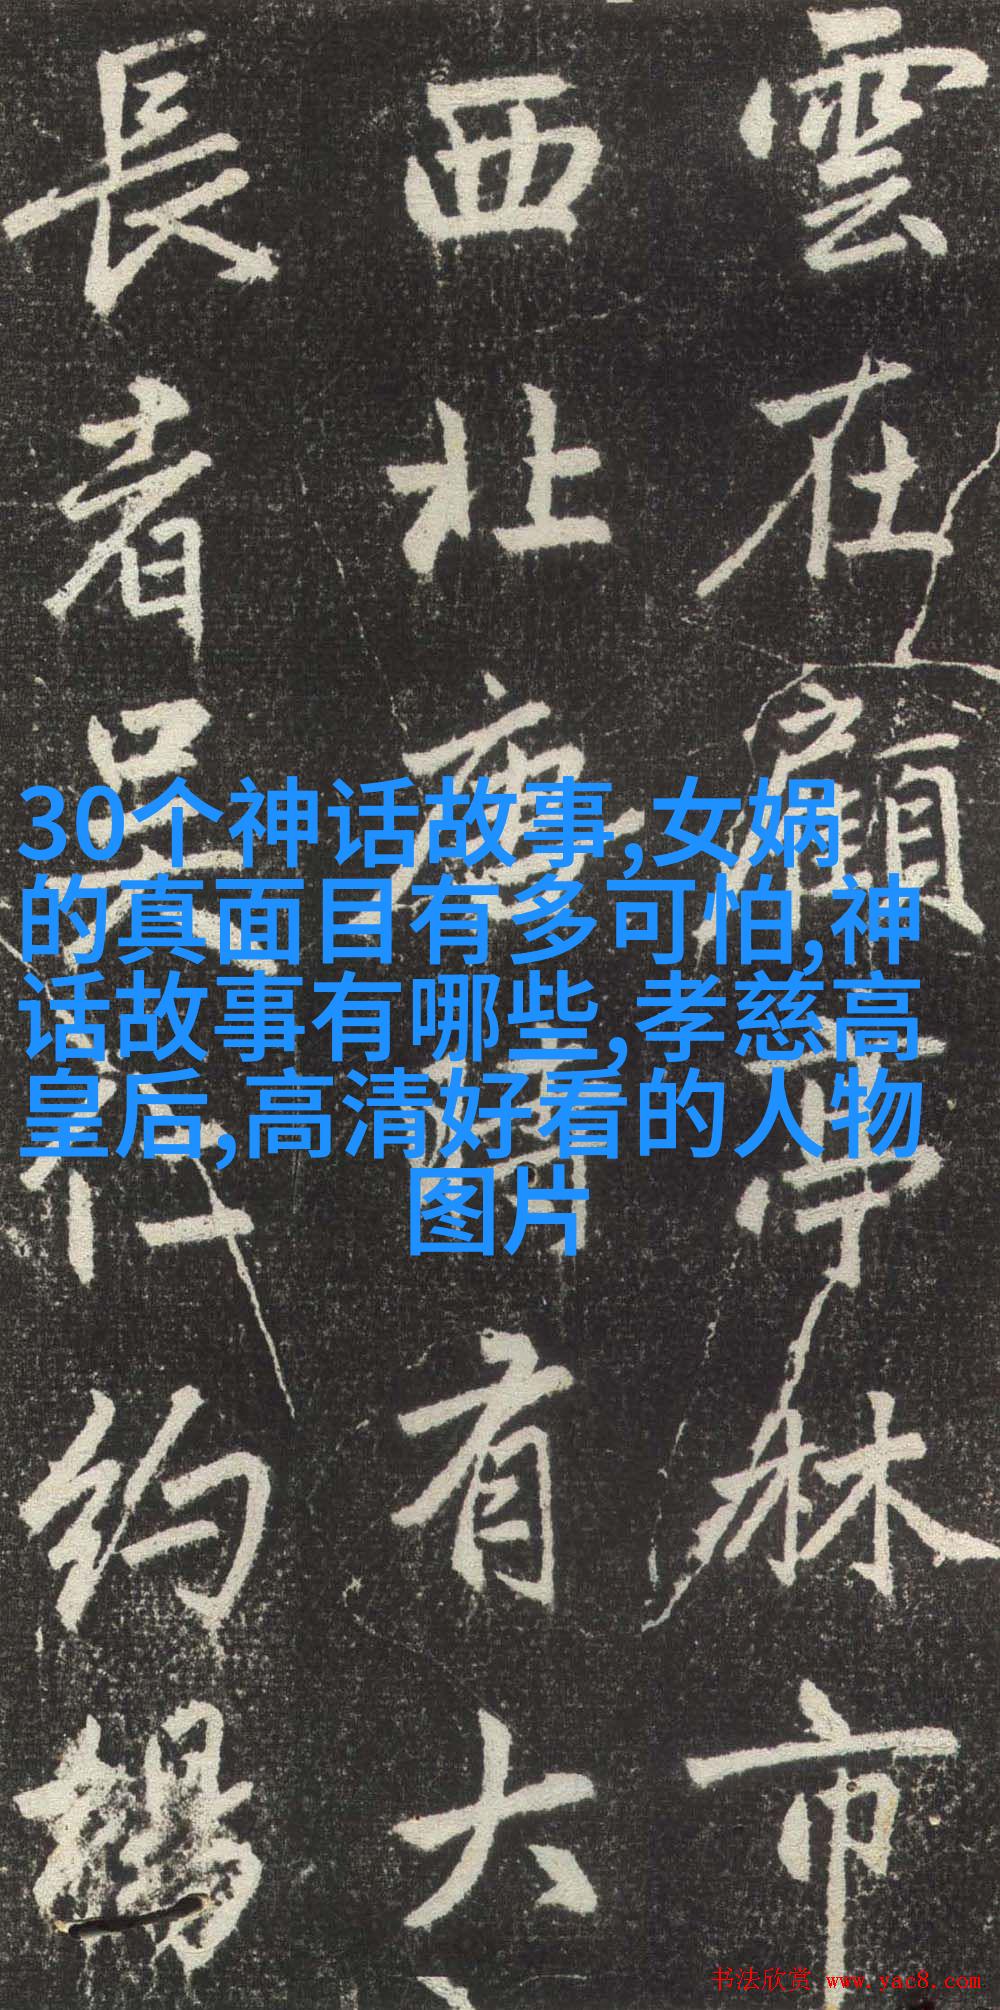 雲在顧亭林市
西北廡 有大
長者吳 約楊
30个神话故事,女娲
的真面目有多可怕,神
话故事有哪些,孝慈高
皇后,高清好看的人物
图片
书法欣赏 www.yac8.com